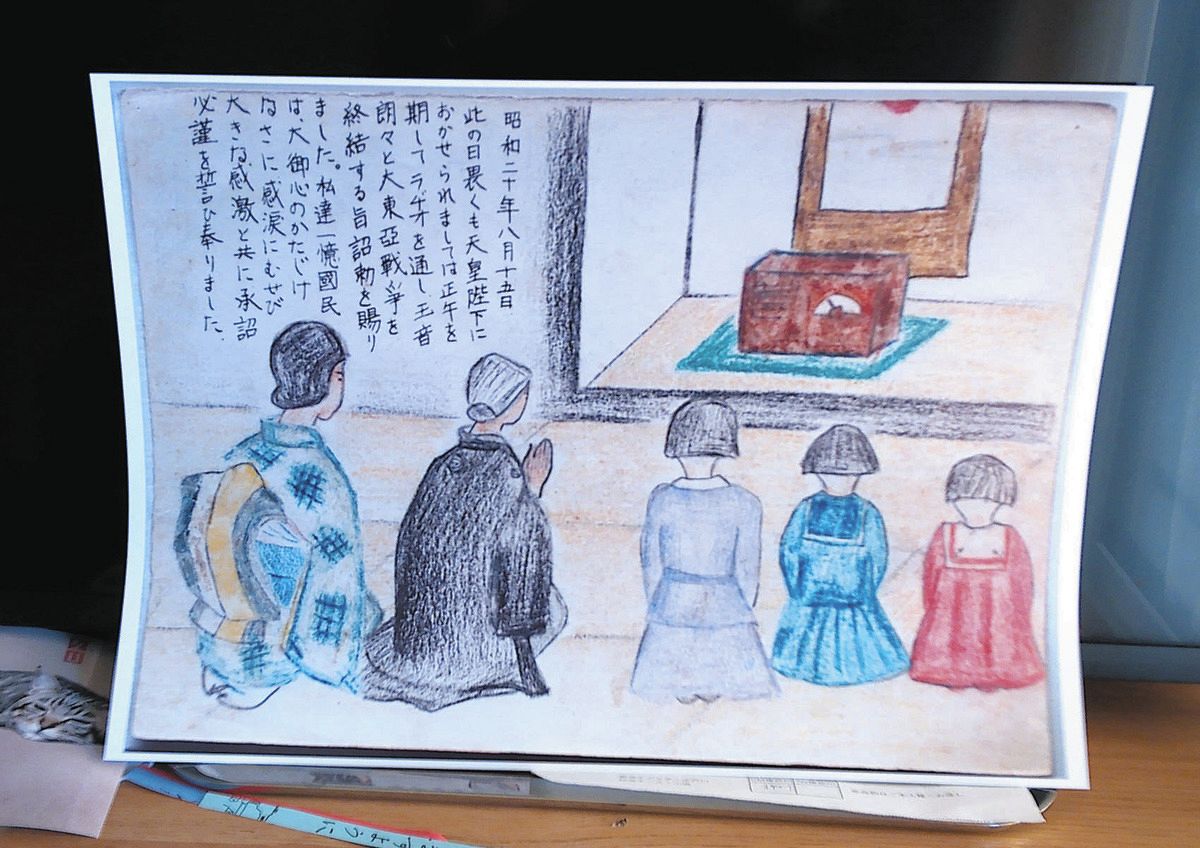 昭和二十年八月十五日
此の日畏くも天皇陛下に
おかせられましては正午を
期してラヂオを通し玉音
朗々と大東亞戰爭を
終結する旨詔勅を賜り
ました。私達一憶國民
は、大御心のかたじけ
なさに感涙にむせび
大きな感激と共に承詔
必謹を誓ひ奉りました。